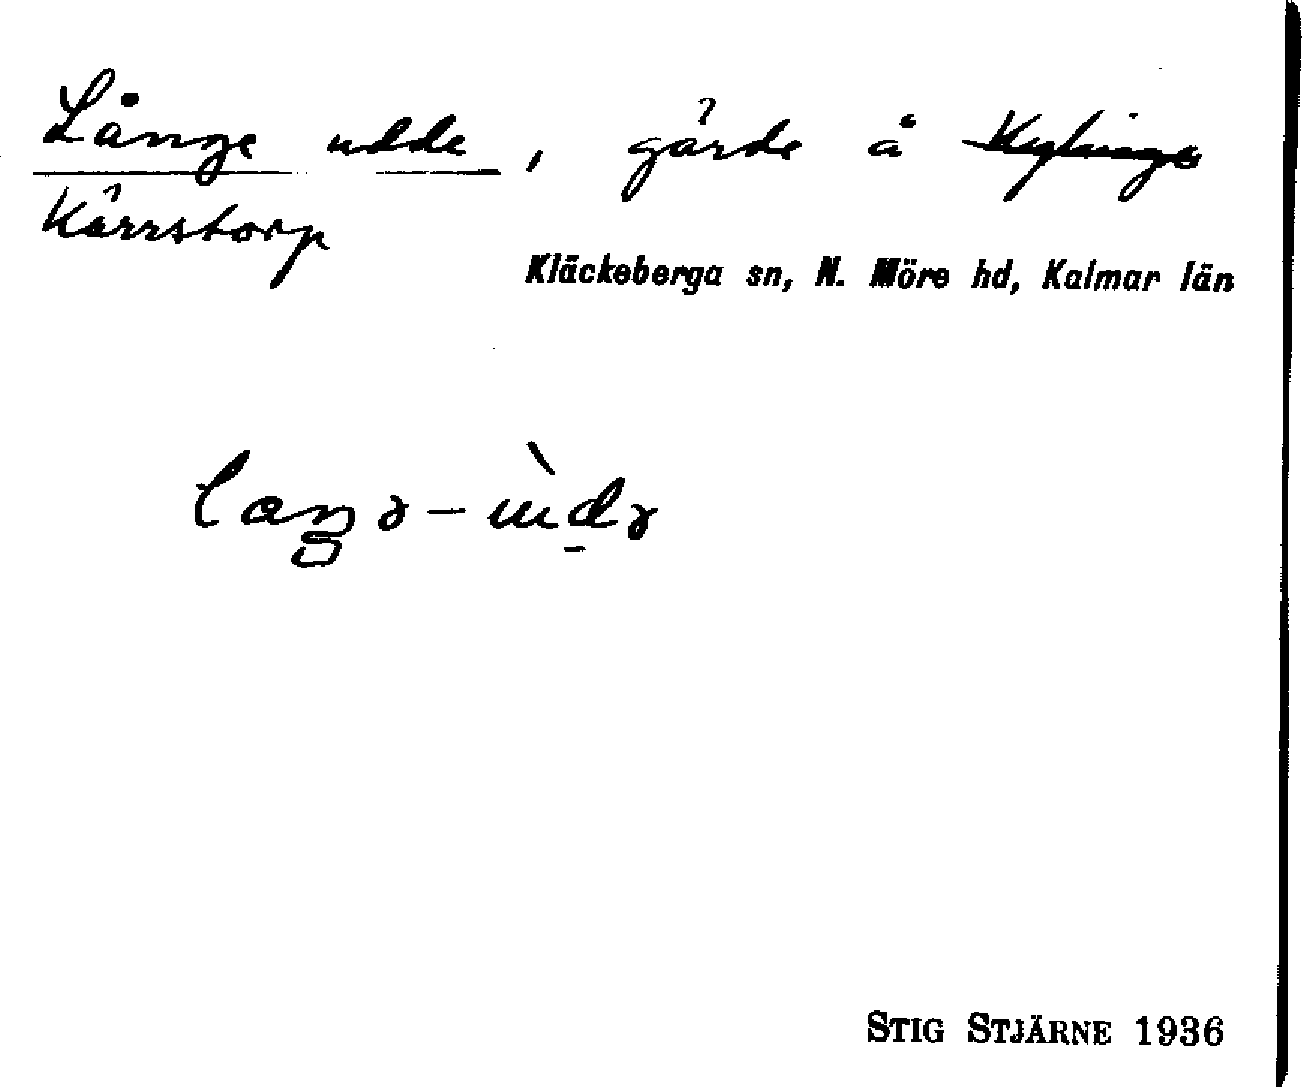 Långe udde, gärde å Kylinge
Kärrstorp
Kläckeberga sn, N. Möre hd, Kalmar län
STIG STJÄRNE 1936